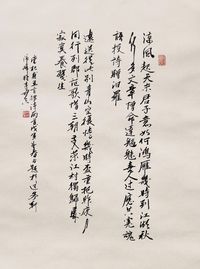 涼風起天末君子意如何鴻雁幾時到江湖秋
水多文章憎命達魑魅喜人過應共冤魂
語投詩贈汨羅
遠送從此別青山空復情幾時杯重把昨夜月
同行列郡謳歌惜三朝出入榮江村獨歸處
寂寞養殘生
唐杜甫五言律詩兩首